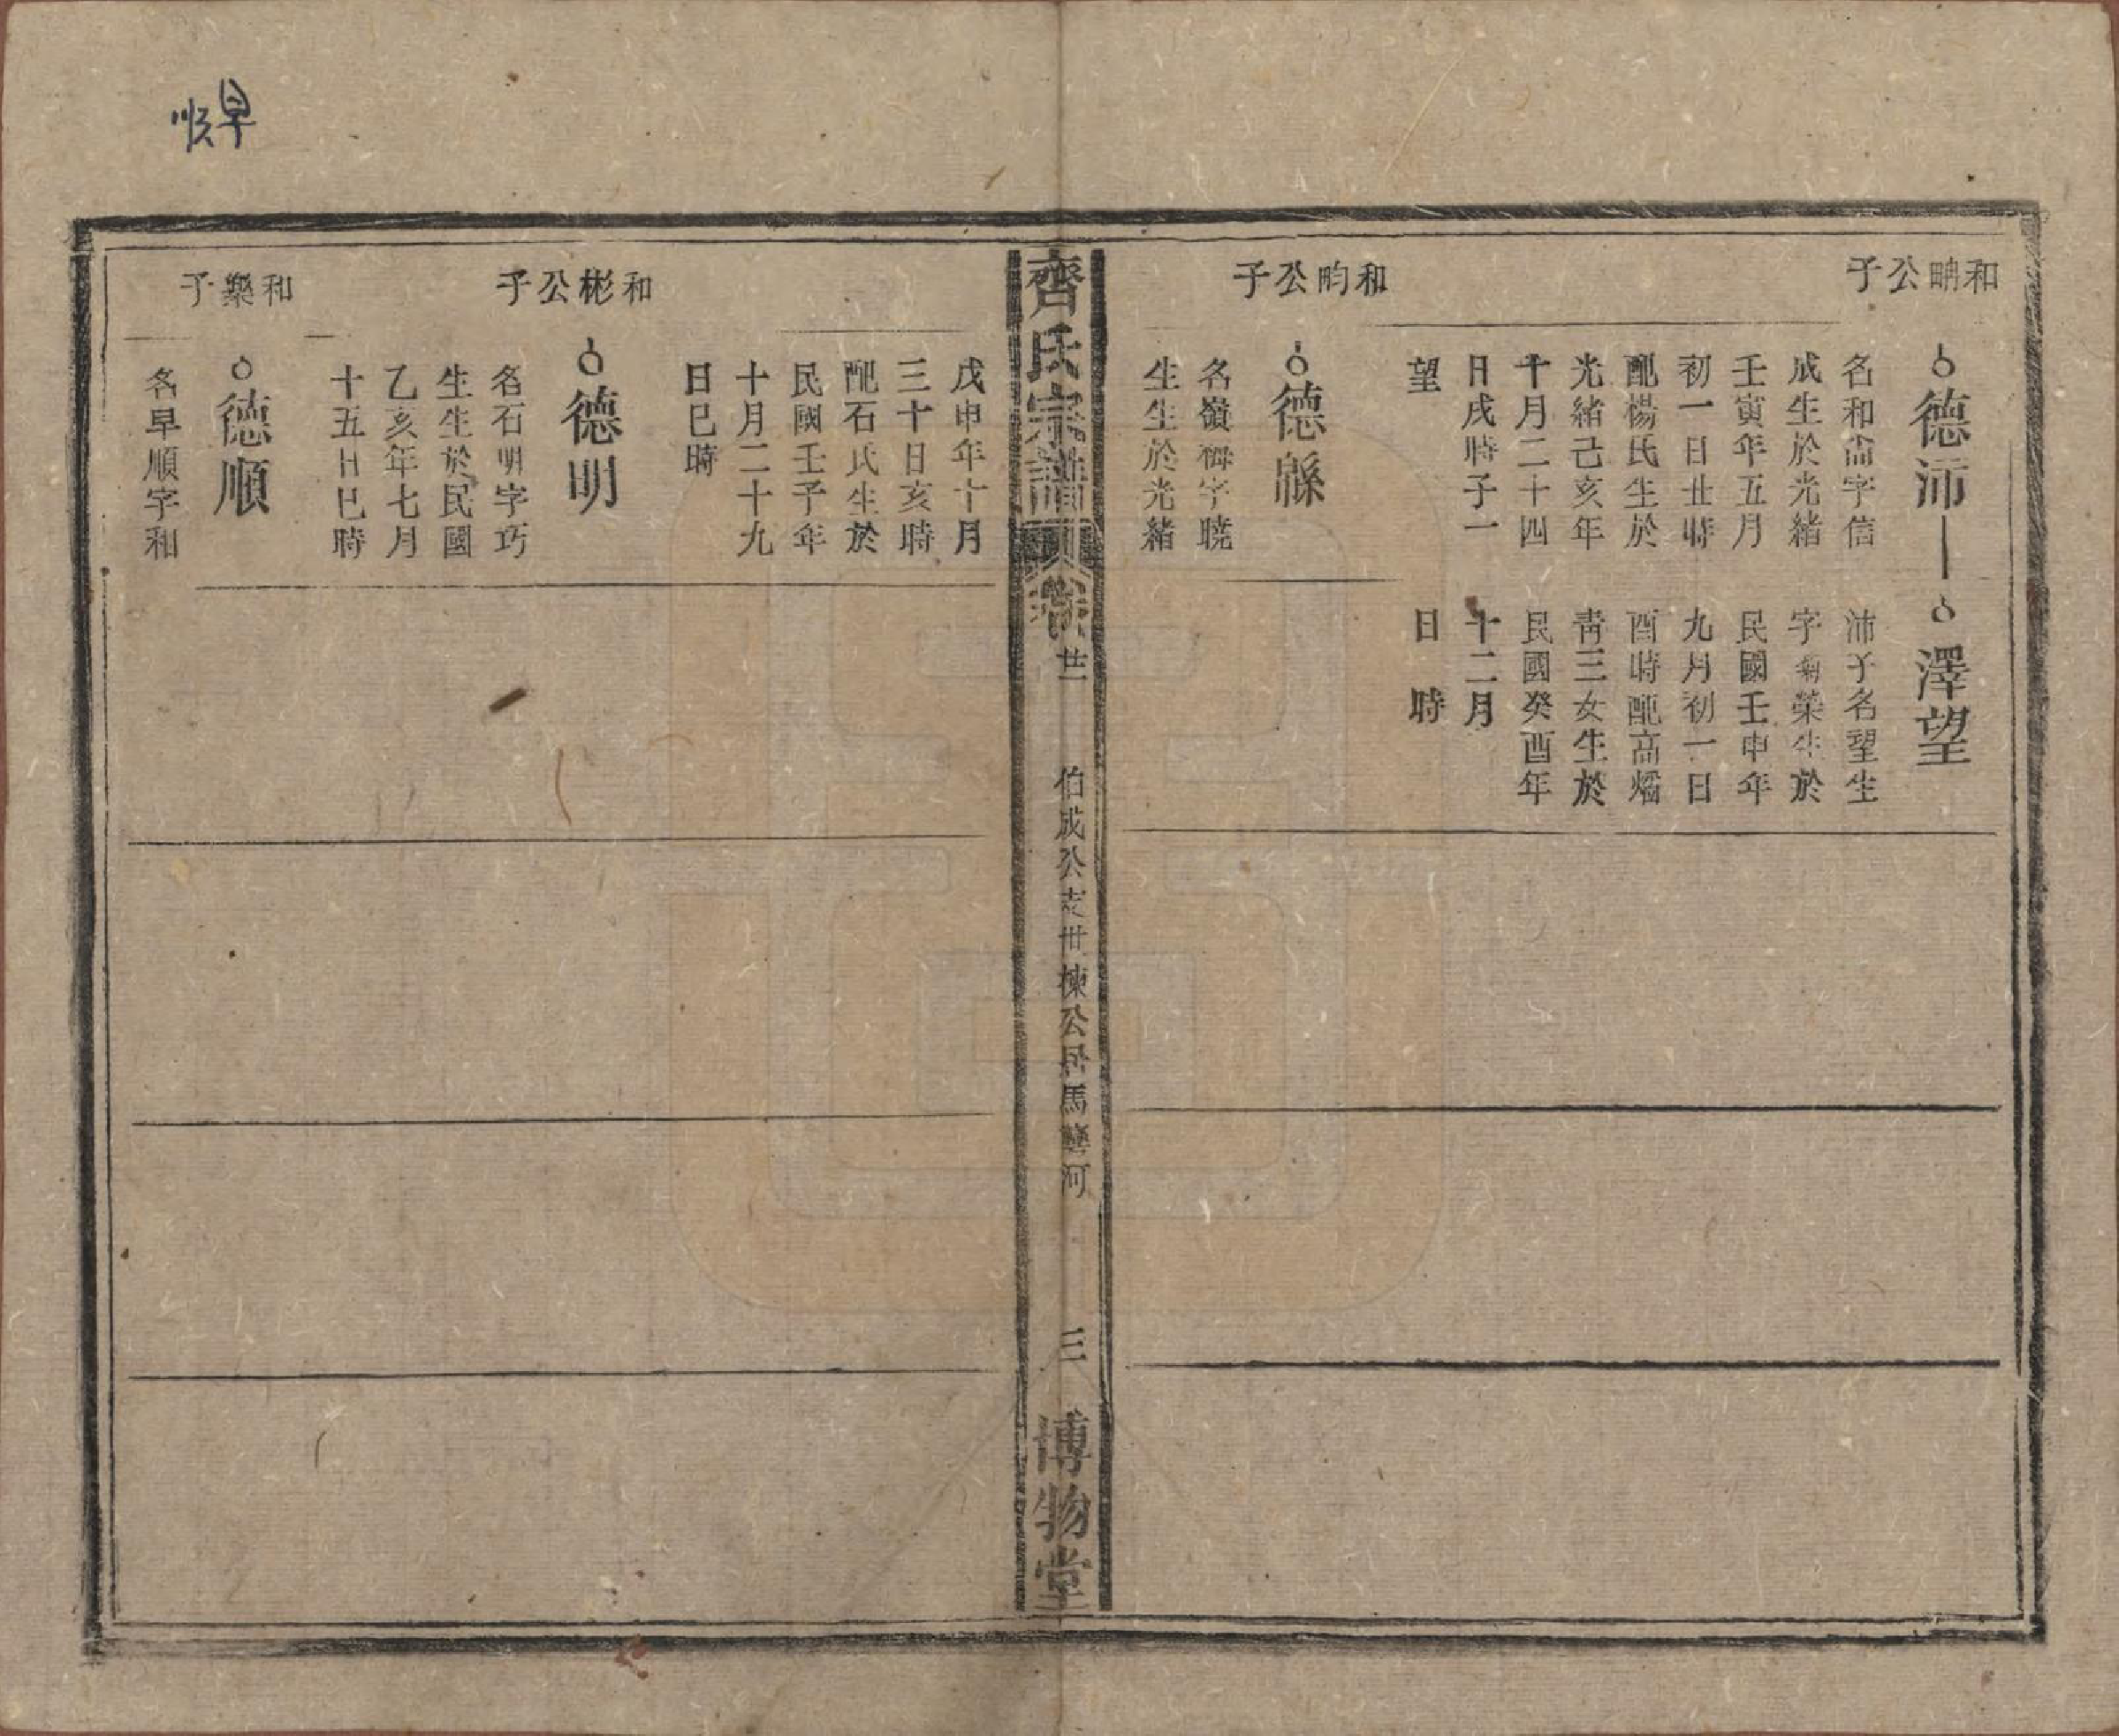 早順
和畘公子
德沛
名和崙字信
成生於光緒
壬寅年五月
初一日丗時
配楊氏生於
光緒己亥年
十月二十四
日戌時子一
望
澤望
沛子名望生
字 榮生於
民國壬申年
九月初一日
酉時配高燔
青三女生於
民國癸酉年
十二月
日 時
和畇公子
德緜
名嶺 字曉
生生於光緒
齊氏宗譜
卷 廿一
伯成公支世棟公居馬 河
三
博物堂
戊申年十月
三十日亥時
配石氏生於
民國壬子年
十月二十九
日巳時
和彬公子
德明
名石明字巧
生生於民國
乙亥年七月
十五日巳時
和樂子
德順
名早順字和